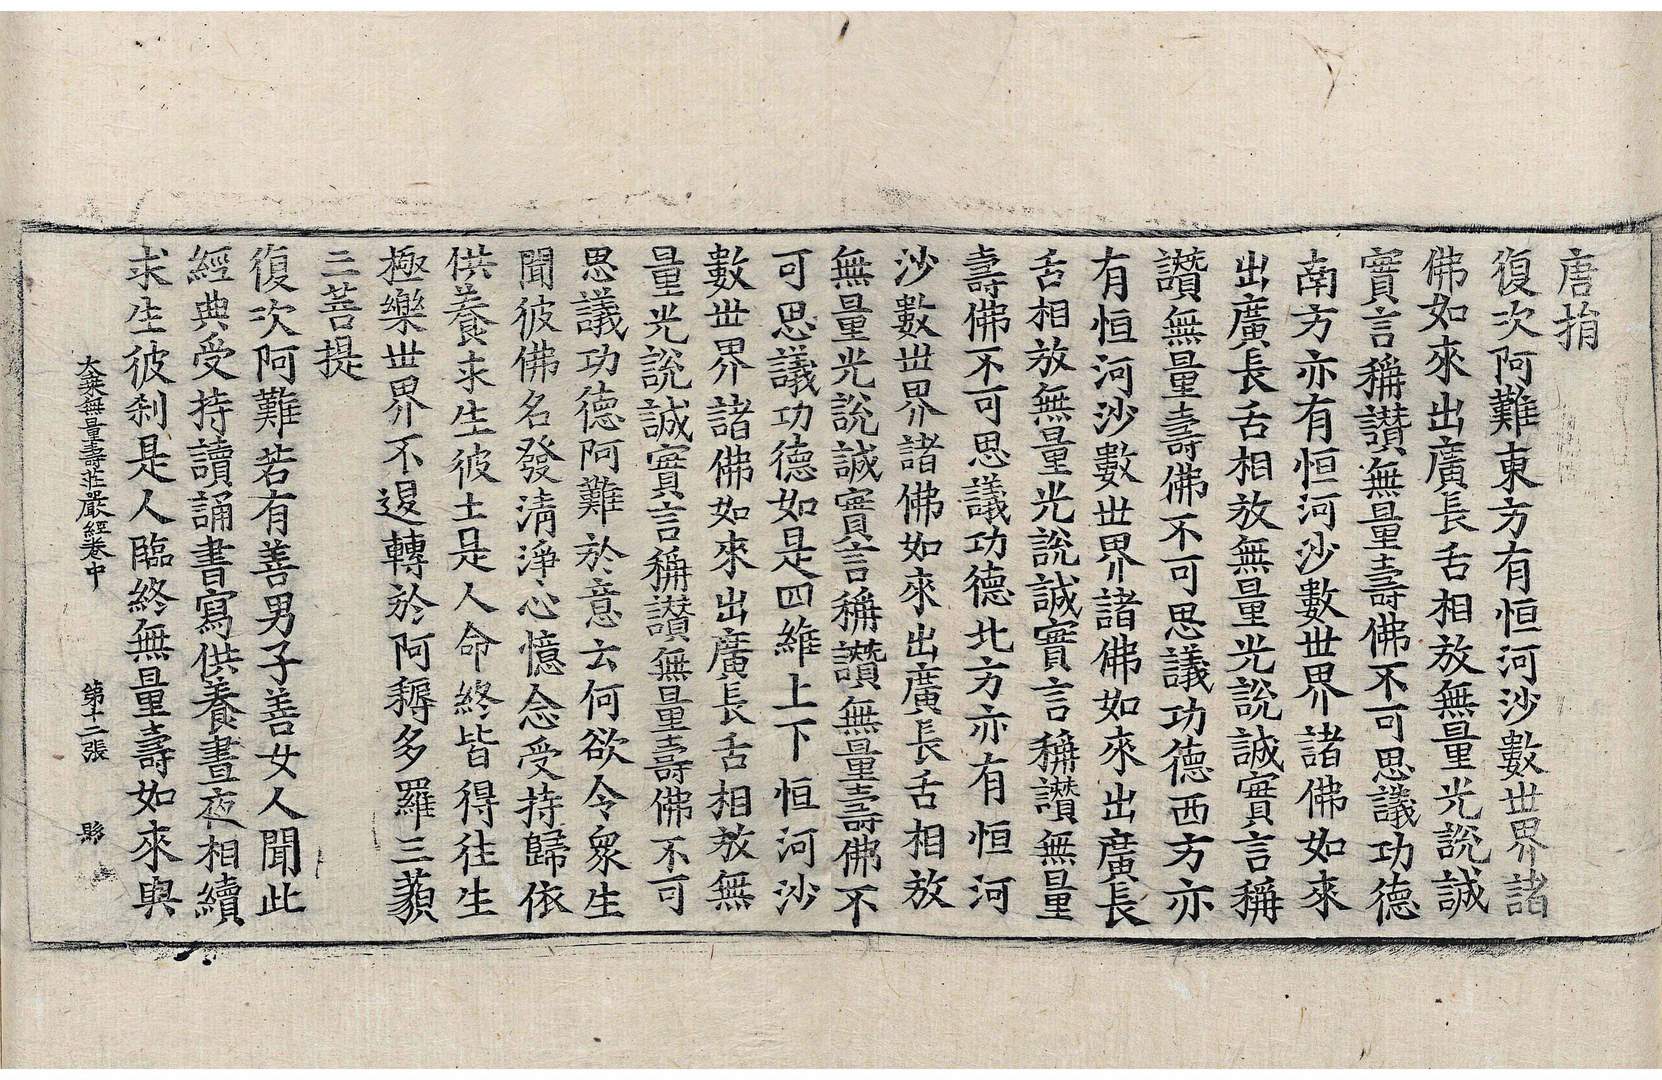 唐捐
復次阿難東方有恒河沙數世界諸
佛如來出廣長舌相放無量光說誠
實言稱讚無量壽佛不可思議功德
南方亦有恒河沙數世界諸佛如來
出廣長舌相放無量光說誠實言稱
讚無量壽佛不可思議功德西方亦
有恒河沙數世界諸佛如來出廣長
舌相放無量光說誠實言稱讚無量
壽佛不可思議功德北方亦有恒河
沙數世界諸佛如來出廣長舌相放
無量光說誠實言稱讚無量壽佛不
可思議功德如是四維上下恒河沙
數世界諸佛如來出廣長舌相放無
量光說誠實言稱讚無量壽佛不可
思議功德阿難於意云何欲令衆生
聞彼佛名發清淨心憶念受持歸依
供養求生彼土是人命終皆得往生
極樂世界不退轉於阿耨多羅三藐
三菩提
復次阿難若有善男子善女人聞此
經典受持讀誦書寫供養晝夜相續
求生彼刹是人臨終無量壽如來與
大乘無量壽莊嚴經卷中 第十二張 㬌